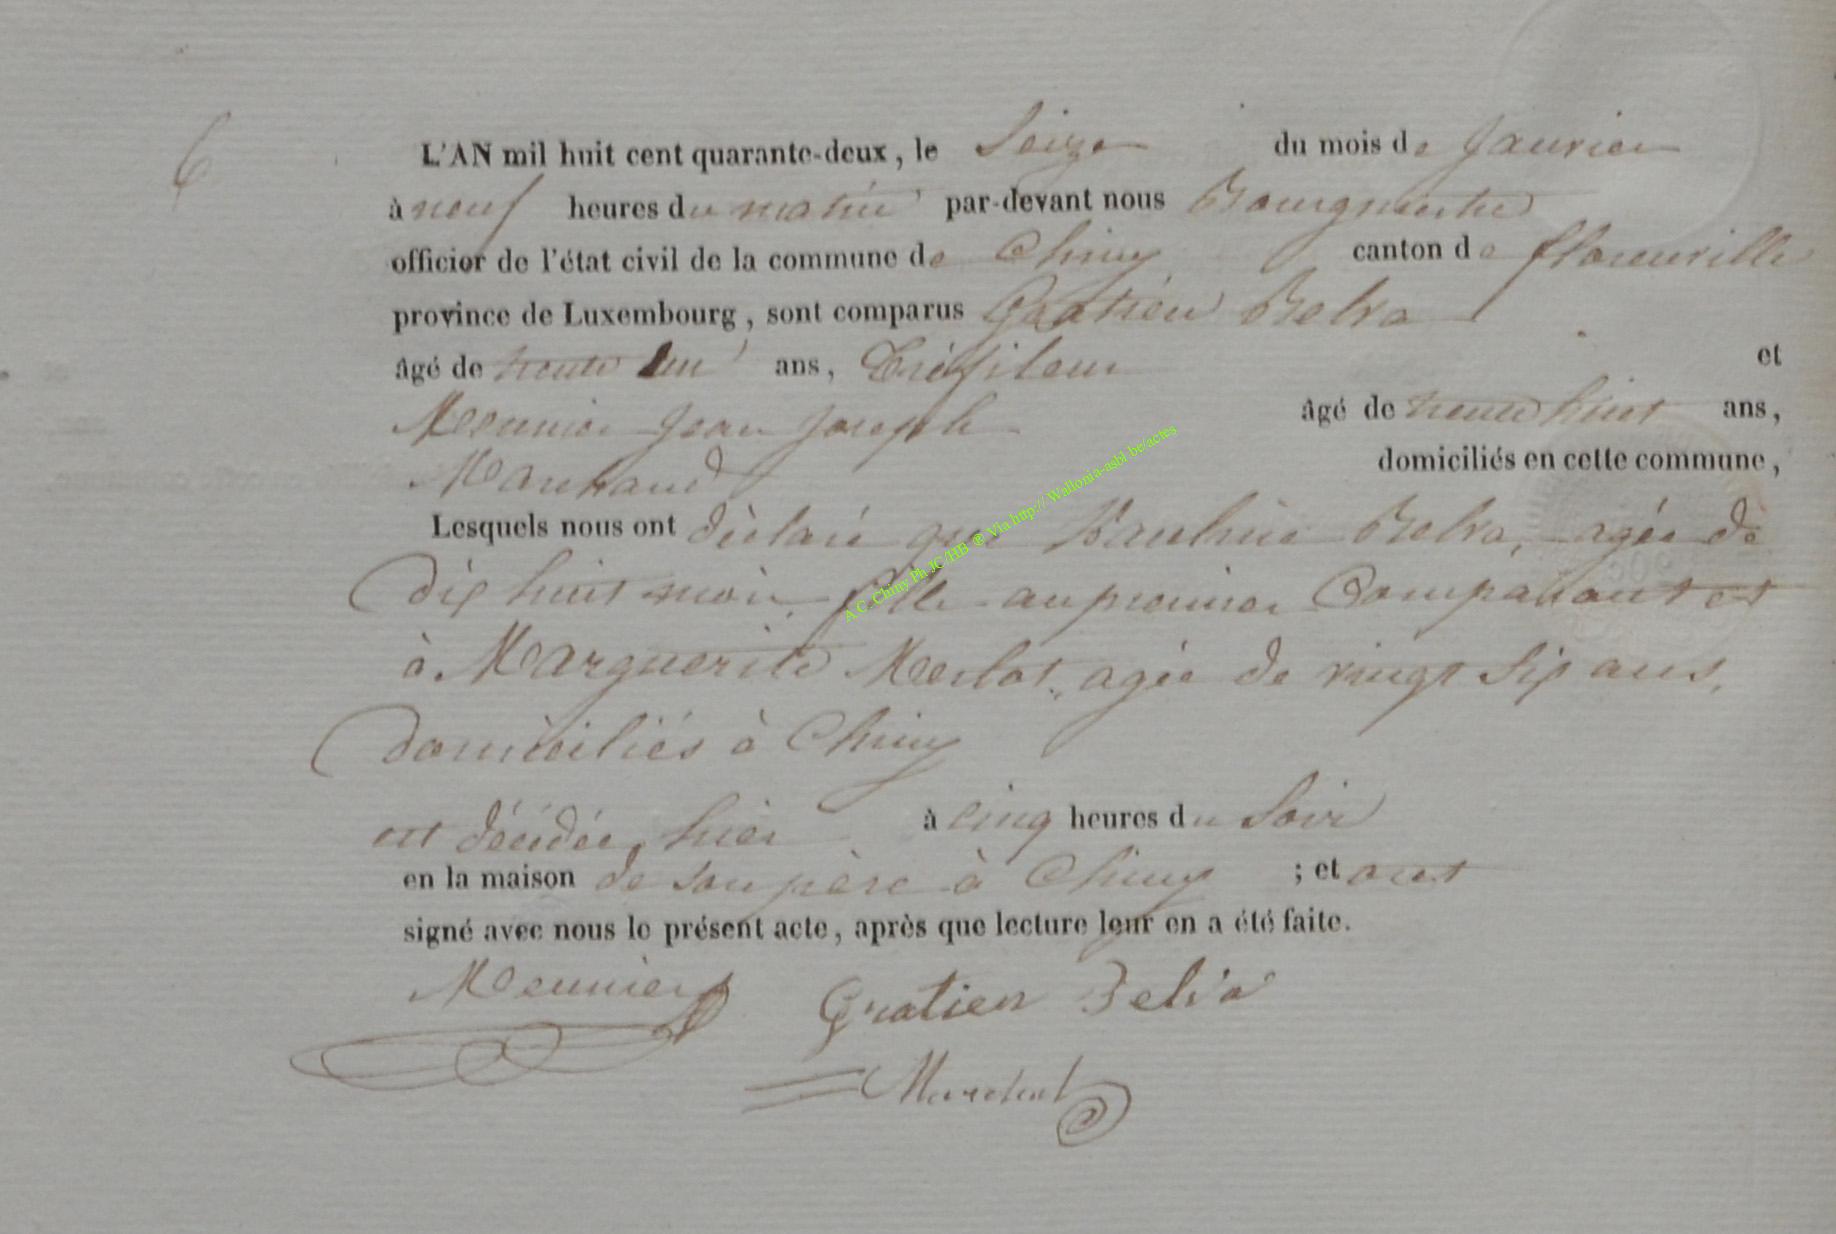 6
L'AN mil huit cent quarante-deux, le Seize du mois de Janvier
à neuf heures du matin par-devant nous Bourgmestre
officier de l'état civil de la commune de Chiny canton de florenville
province de Luxembourg, sont comparus Gratien Belva
âgé de trente un ans, Tréfileur et
Meunier Jean Joseph âgé de trente huit ans,
Marchand domiciliés en cette commune,
Lesquels nous ont déclaré que Pauline Belva, agée de
dix huit mois, fille au premier Comparant et
à Marguerite Merlot, agée de vingt six ans,
domiciliés à Chiny
est décédée hier à cinq heures du Soir
en la maison de son père à Chiny ; et ont
signé avec nous le présent acte, après que lecture leur en a été faite.
Meunier Gratien Belva
Marchal
A.C. Chiny Ph JC/HB ® Via http://Wallonia-asbl.be/actes